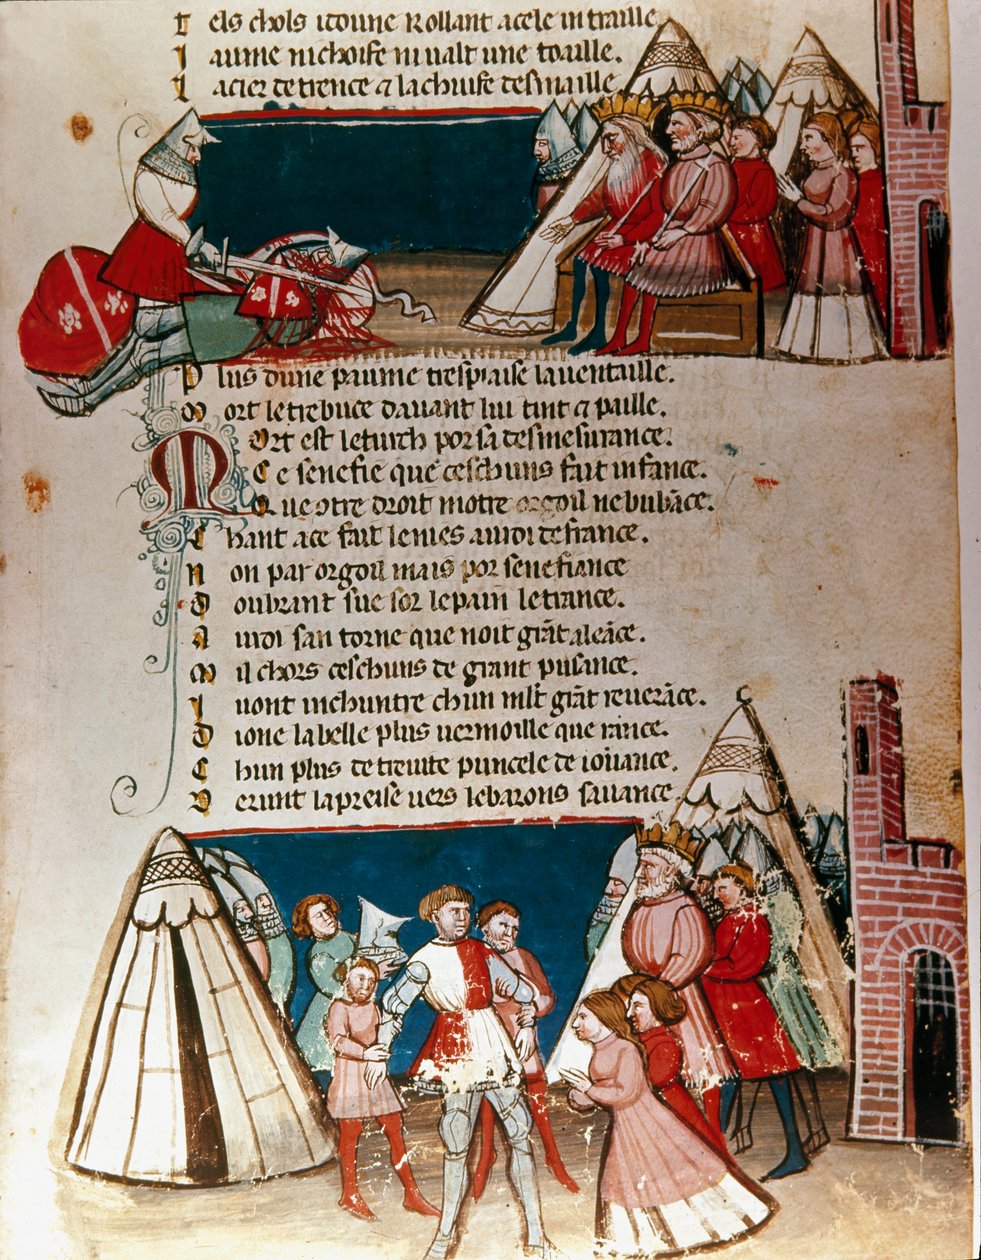 T els chols itoune Rollant a cele intraille
J aume ni choise ni ualt une toaille.
J acier de trence & la chuise desmaille.
P lus dune paume tres praise la uentaille.
M ort le trebuce dauant lui tint a paille.
M Ort est le turch por sa desmesurance.
C e senefie que ceschuns fait infance.
Q ue otre droit motre orgoil ne bubāce.
C hant ace fait le nies au roi de france.
N on par orgoil mais por senefiance
D oubrant sue sor le pain le trance.
A u roi san torne que noit grāt aleāce.
M il chors ceschuns de grant pusance.
J uont inchuntre chun mlt grāt reuerāce.
D ione la belle plus uermoille que rance.
C hun plus de treute puncele de iouance.
D erunt la preise uers le barons sauance